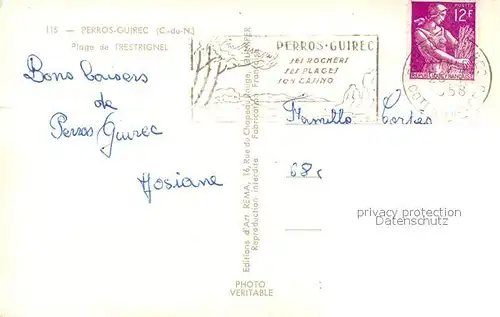 115 — PERROS-GUIREC (C.-du-N.)
Plage de TRESTRIGNEL
Bons baisers
de
Perros Guirec
Josiane
Editions d'Art REMA, 16, Rue du Chapeau-Rouge, QUIMPER
Reproduction interdite Fabrication Française
PHOTO
VERITABLE
PERROS-GUIREC
SES ROCHERS
SES PLAGES
SON CASINO
POSTES
12F
Famille
68
privacy protection
Datenschutz